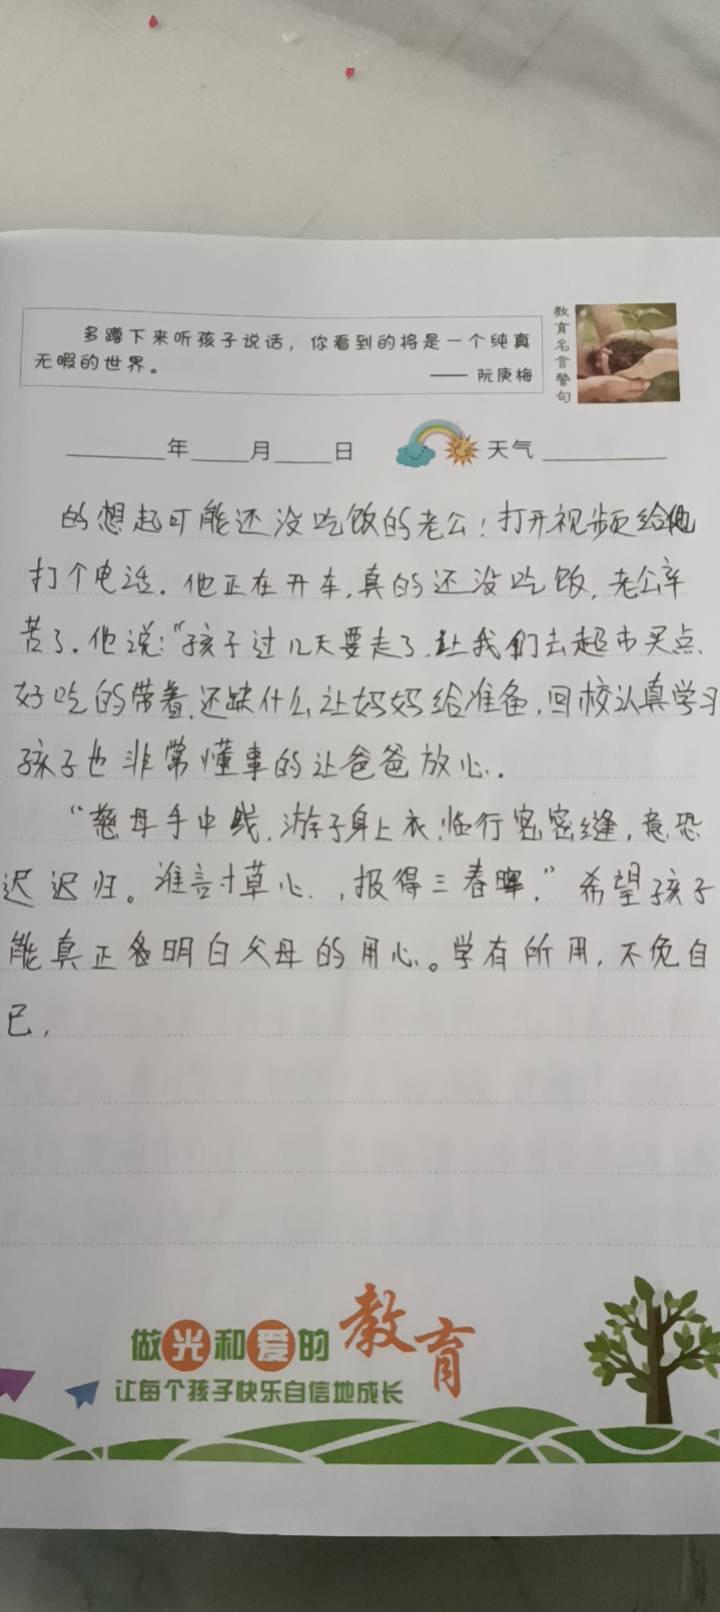 多蹲下来听孩子说话，你看到的将是一个纯真
无暇的世界。
—— 阮庚梅
教育名言警句
年 月 日 天气
的想起可能还没吃饭的老公！打开视频给他
打个电话．他正在开车，真的还没吃饭，老公辛
苦了．他说：“孩子过几天要走了．让我们去超市买点
好吃的带着，还缺什么让妈妈给准备，回校认真学习
孩子也非常懂事的让爸爸放心．
“慈母手中线．游子身上衣．临行密密缝，意恐
迟迟归。谁言寸草心．，报得三春晖．”希望孩子
能真正明白父母的用心。学有所用，不免自
已，
做光和爱的教育
让每个孩子快乐自信地成长